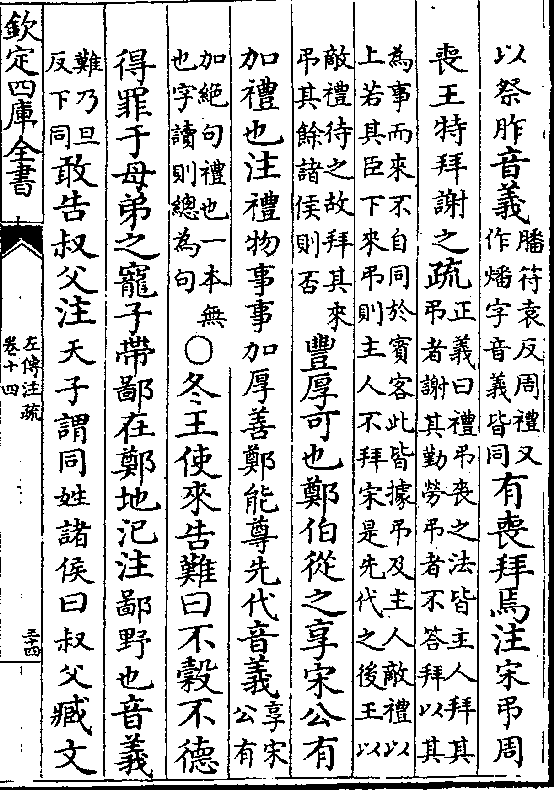 以祭胙音義膰符袁反周禮又
作燔字音義皆同有喪拜焉注宋弔周
喪王特拜謝之疏正義曰禮弔喪之法皆主人拜其
弔者謝其勤勞弔者不答拜以其
為事而來不自同於賓客此皆據弔及主人敵禮以
上若其臣下來弔則主人不拜宋是先代之後王以
敵禮待之故拜其來
弔其餘諸侯則否豐厚可也鄭伯從之享宋公有
加禮也注禮物事事加厚善鄭能尊先代音義享宋
公有
加絕句禮也一本無
也字讀則總為句○冬王使來告難曰不穀不德
得罪于母弟之寵子帶鄙在鄭地汜注鄙野也音義
難乃旦
反下同敢告叔父注天子謂同姓諸侯曰叔父臧文
欽定四庫全書
左傳注疏
卷十四
三十四